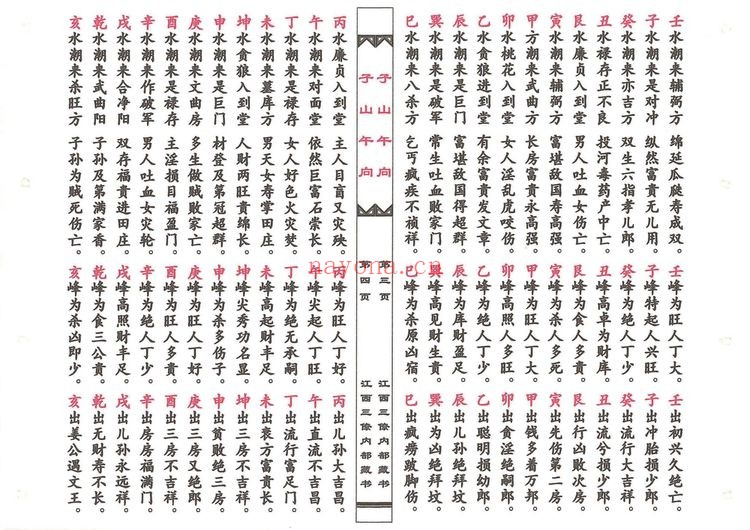 壬水潮来辅弼方 绵延瓜瓞寿成双。壬峰为旺人丁大。壬出初兴久绝亡。
子水潮来是对冲 纵然富贵无儿用。子峰特起人兴旺。子出冲胎损少郎。
癸水潮来亦吉方 双生六指孝儿郎。癸峰为绝人丁少。癸出流行大吉昌。
丑水禄存正不良 投河毒药产中亡。丑峰高卓为财库。丑出流兮损少郎。
艮水廉贞入到堂 男人吐血女伤亡。艮峰为旺人多贵。艮出行凶败次房。
寅水潮来辅弼方 富堪敌国寿高强。寅峰为杀人多死。寅出先伤第二房。
甲方潮来武曲方 长房富贵永高强。甲峰为旺人丁大。甲出钱多着万邦。
卯水桃花入到堂 女人淫乱虎咬伤。卯峰高照人多旺。卯出贪淫绝嗣郎。
乙水贪狼进到堂 有余富贵发文章。乙峰为绝人丁少。乙出聪明损幼郎。
辰水潮来是巨门 富堪敌国得超群。辰峰为库财盈足。辰出儿孙绝拜坟。
巽水潮来是破军 常生吐血败家门。巽峰高见财生贵。巽出为凶绝拜坟。
巳水潮来八杀方 乞丐疯疾不祯祥。巳峰为杀原凶宿。巳出疯痨跛脚伤。
子山午向 第三页 江西三僚内部藏书
子山午向 第四页 江西三僚内部藏书
丙水廉贞入到堂 主人目盲又灾殃。丙峰为旺人丁好。丙出儿孙大吉昌。
午水潮来对面堂 依然巨富石崇长。午峰尖起人丁旺。午出直流不吉昌。
丁水潮来是禄存 女人好色火灾焚。丁峰为绝无承嗣。丁出流行富足门。
未水潮来墓库方 男天女寿掌田庄。未峰高起财丰足。未出衰方富贵长。
坤水贪狼入到堂 人财两旺贵绵长。坤峰尖秀功名显。坤出三房不吉祥。
申水潮来是巨门 材登及第冠超群。申峰为杀多伤子。申出贫败绝三房。
庚水潮来文曲房 多生做贼败家亡。庚峰为旺人丁好。庚出三房又绝郎。
酉水潮来是禄存 主淫损目福盈门。酉峰为旺人多贵。酉出三房不吉祥。
辛水潮来作破军 男人吐血女灾轮。辛峰为绝人丁少。辛出房房福满门。
戌水潮来合净阳 双存福贵进田庄。戌峰高照财丰足。戌出儿孙永远祥。
乾水潮来武曲阳 子孙及第满家香。乾峰为食三公贵。乾出无财寿不长。
亥水潮来杀旺方 子孙为贼死伤亡。亥峰为杀凶即少。亥出姜公遇文王。
nayona.cn